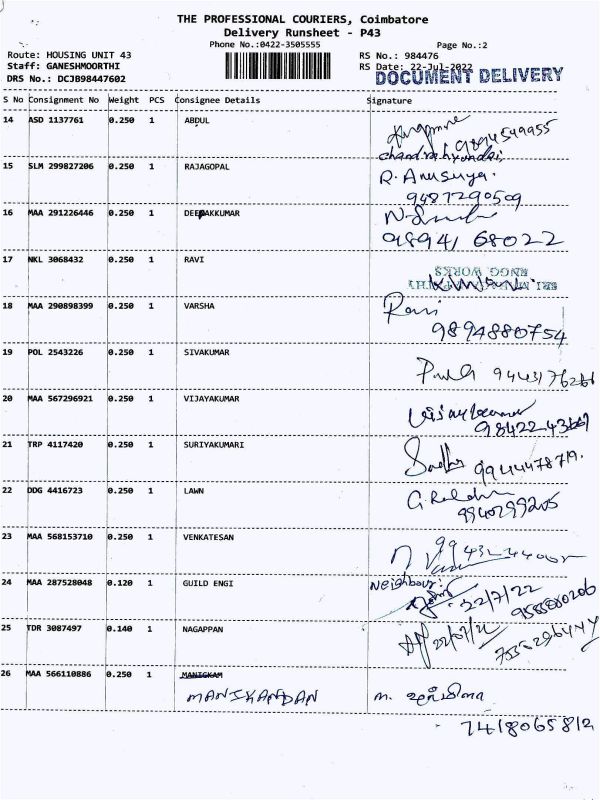 THE PROFESSIONAL COURIERS, Coimbatore
Delivery Runsheet - P43
Phone No.:0422-3505555
Page No.:2
Route: HOUSING UNIT 43
RS No.: 984476
Staff: GANESHMOORTHI
RS Date: 22-Jul-2022
DRS No.: DCJB98447602
DOCUMENT DELIVERY
S No Consignment No Weight PCS Consignee Details Signature
14 ASD 1137761 0.250 1 ABDUL
9894549955
15 SLM 299827206 0.250 1 RAJAGOPAL R. Anusuya.
9487290509
16 MAA 291226446 0.250 1 DEEPAKKUMAR
98941 68022
17 NKL 3068432 0.250 1 RAVI
ENGG WORKS
18 MAA 290898399 0.250 1 VARSHA Ravi
9894880754
19 POL 2543226 0.250 1 SIVAKUMAR
20 MAA 567296921 0.250 1 VIJAYAKUMAR Vijayakumar
21 TRP 4117420 0.250 1 SURIYAKUMARI
9944478719.
22 DDG 4416723 0.250 1 LAWN
9940299205
23 MAA 568153710 0.250 1 VENKATESAN
24 MAA 287528048 0.120 1 GUILD ENGI Neighbour:
22/7/22
25 TDR 3087497 0.140 1 NAGAPPAN
26 MAA 566110886 0.250 1 MANICKAM
MANIKANDAN
7418065812